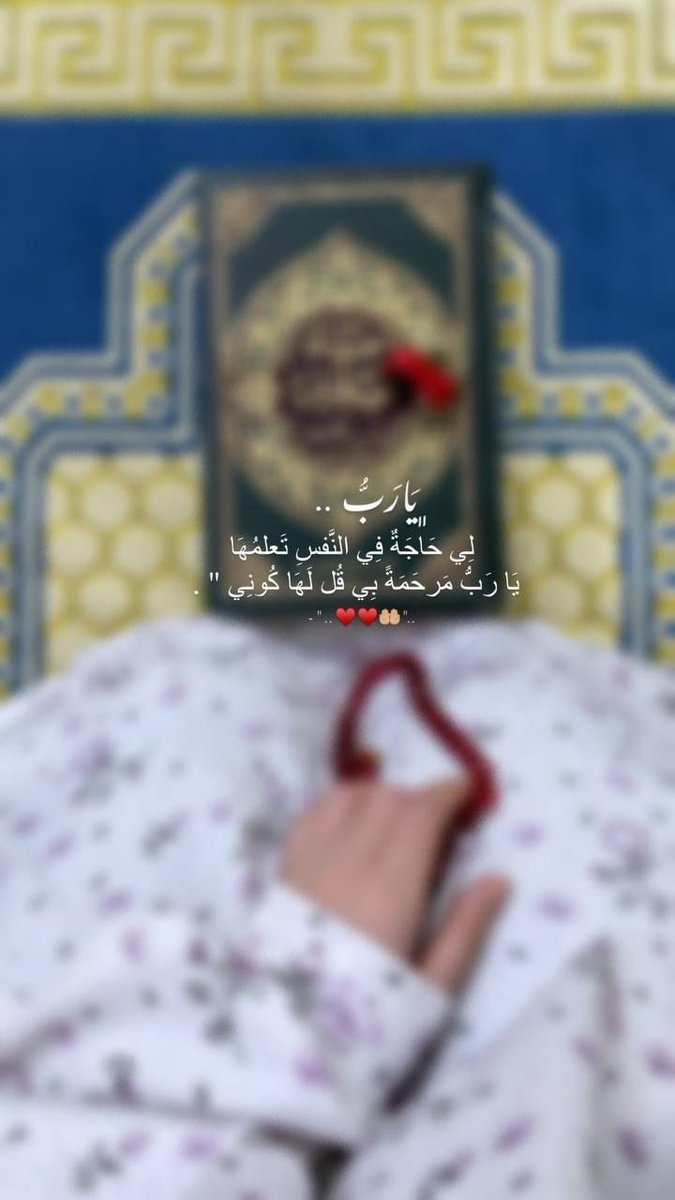 يَارَبُّ ..
لِي حَاجَةٌ فِي النَّفسِ تَعلمُهَا
يَا رَبُّ مَرحَمَةً بِي قُل لَهَا كُونِي " .
.."🤲🏼♥️♥️.." -